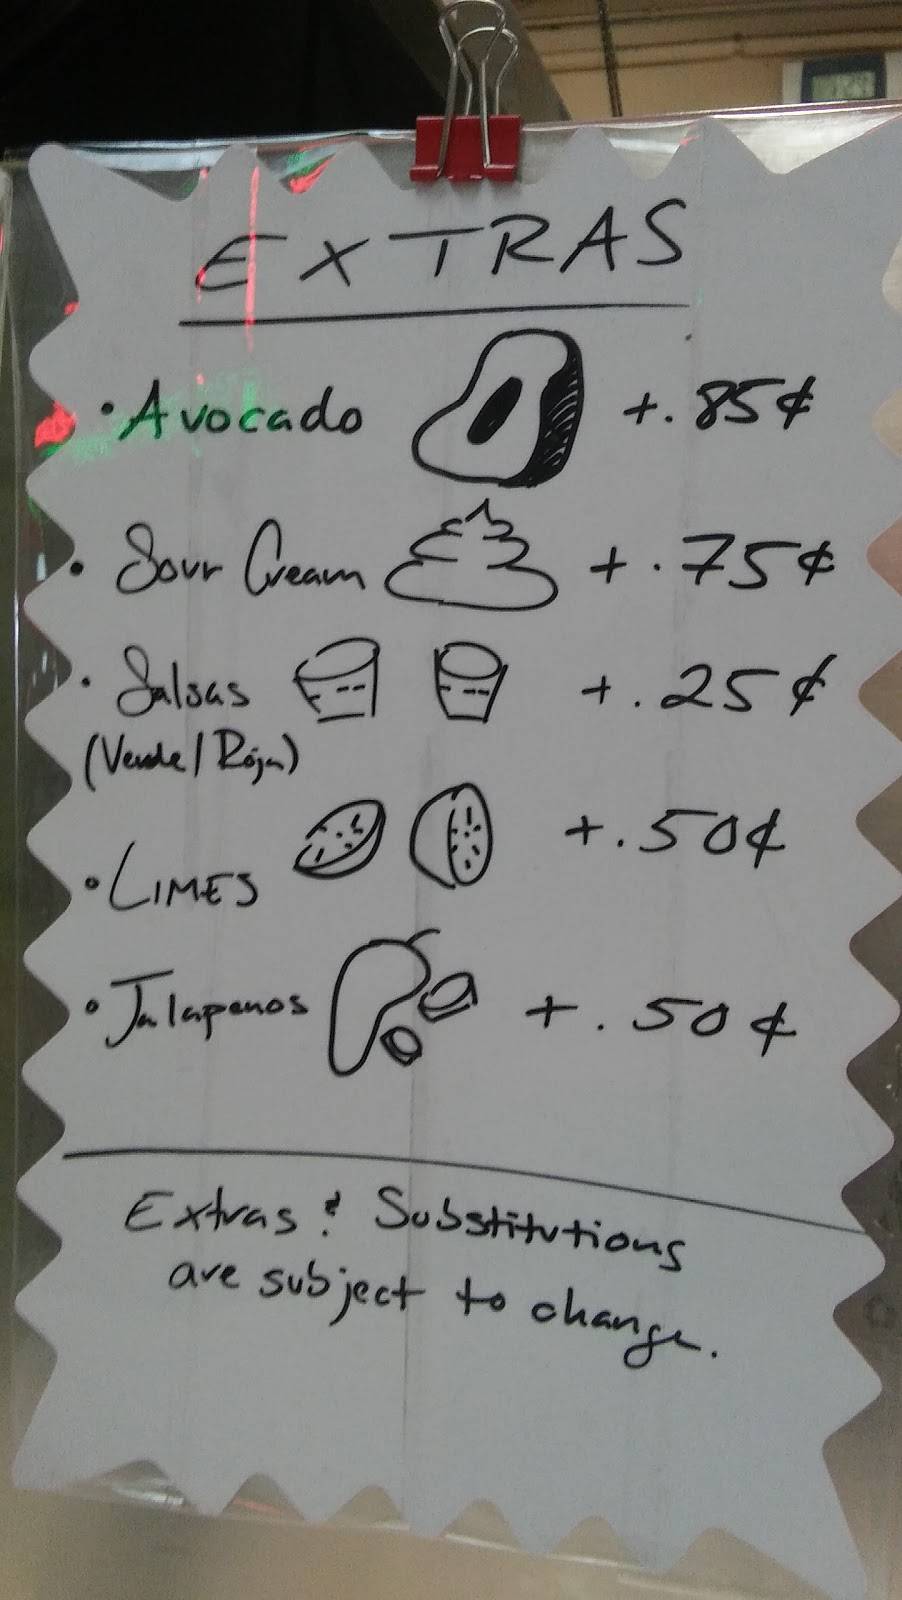 EXTRAS
• Avocado +.85¢
• Sour Cream +.75¢
• Salsas +.25¢
(Verde/Roja)
• LIMES +.50¢
• Jalapenos +.50¢
Extras & Substitutions
are subject to change.